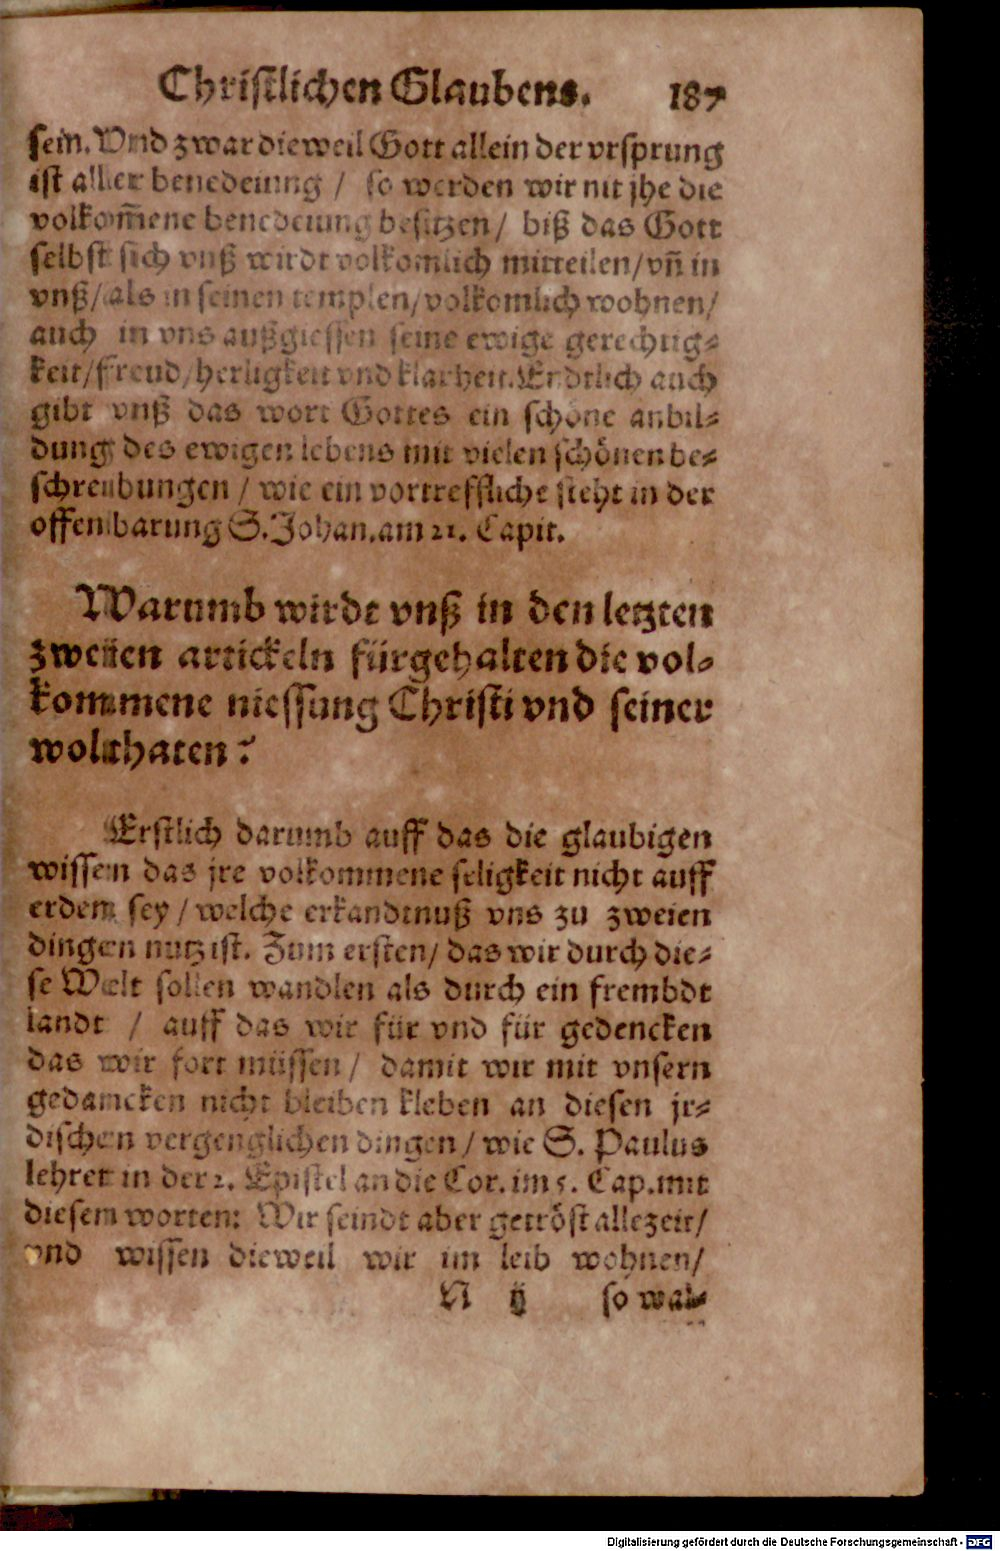 Christlichen Glaubens. 187
sein. Vnd zwar dieweil Gott allein der vrsprung
ist aller benedeiung / so werden wir nit jhe die
volkom̃ene benedeiung besitzen / biß das Gott
selbst sich vnß wirdt volkomlich mitteilen / vñ in
vnß / als in seinen templen / volkomlich wohnen /
auch in vns außgiessen seine ewige gerechtig-
keit / freud / herligkeit vnd klarheit. Endtlich auch
gibt vnß das wort Gottes ein schöne anbil-
dung des ewigen lebens mit vielen schönen be-
schreibungen / wie ein vortreffliche steht in der
offenbarung S. Johan. am 21. Capit.
Warumb wirdt vnß in den letzten
zweien artickeln fürgehalten die vol-
kommene niessung Christi vnd seiner
wolthaten?
Erstlich darumb auff das die glaubigen
wissen das jre volkommene seligkeit nicht auff
erden sey / welche erkandtnuß vns zu zweien
dingen nutz ist. Zum ersten / das wir durch die-
se Welt sollen wandlen als durch ein frembdt
landt / auff das wir für vnd für gedencken
das wir fort müssen / damit wir mit vnsern
gedancken nicht bleiben kleben an diesen jr-
dischen vergenglichen dingen / wie S. Paulus
lehret in der 2. Epistel an die Cor. im 5. Cap. mit
diesen worten: Wir seindt aber getröst allezeit /
vnd wissen dieweil wir im leib wohnen /
N ij so wal-
Digitalisierung gefördert durch die Deutsche Forschungsgemeinschaft - DFG